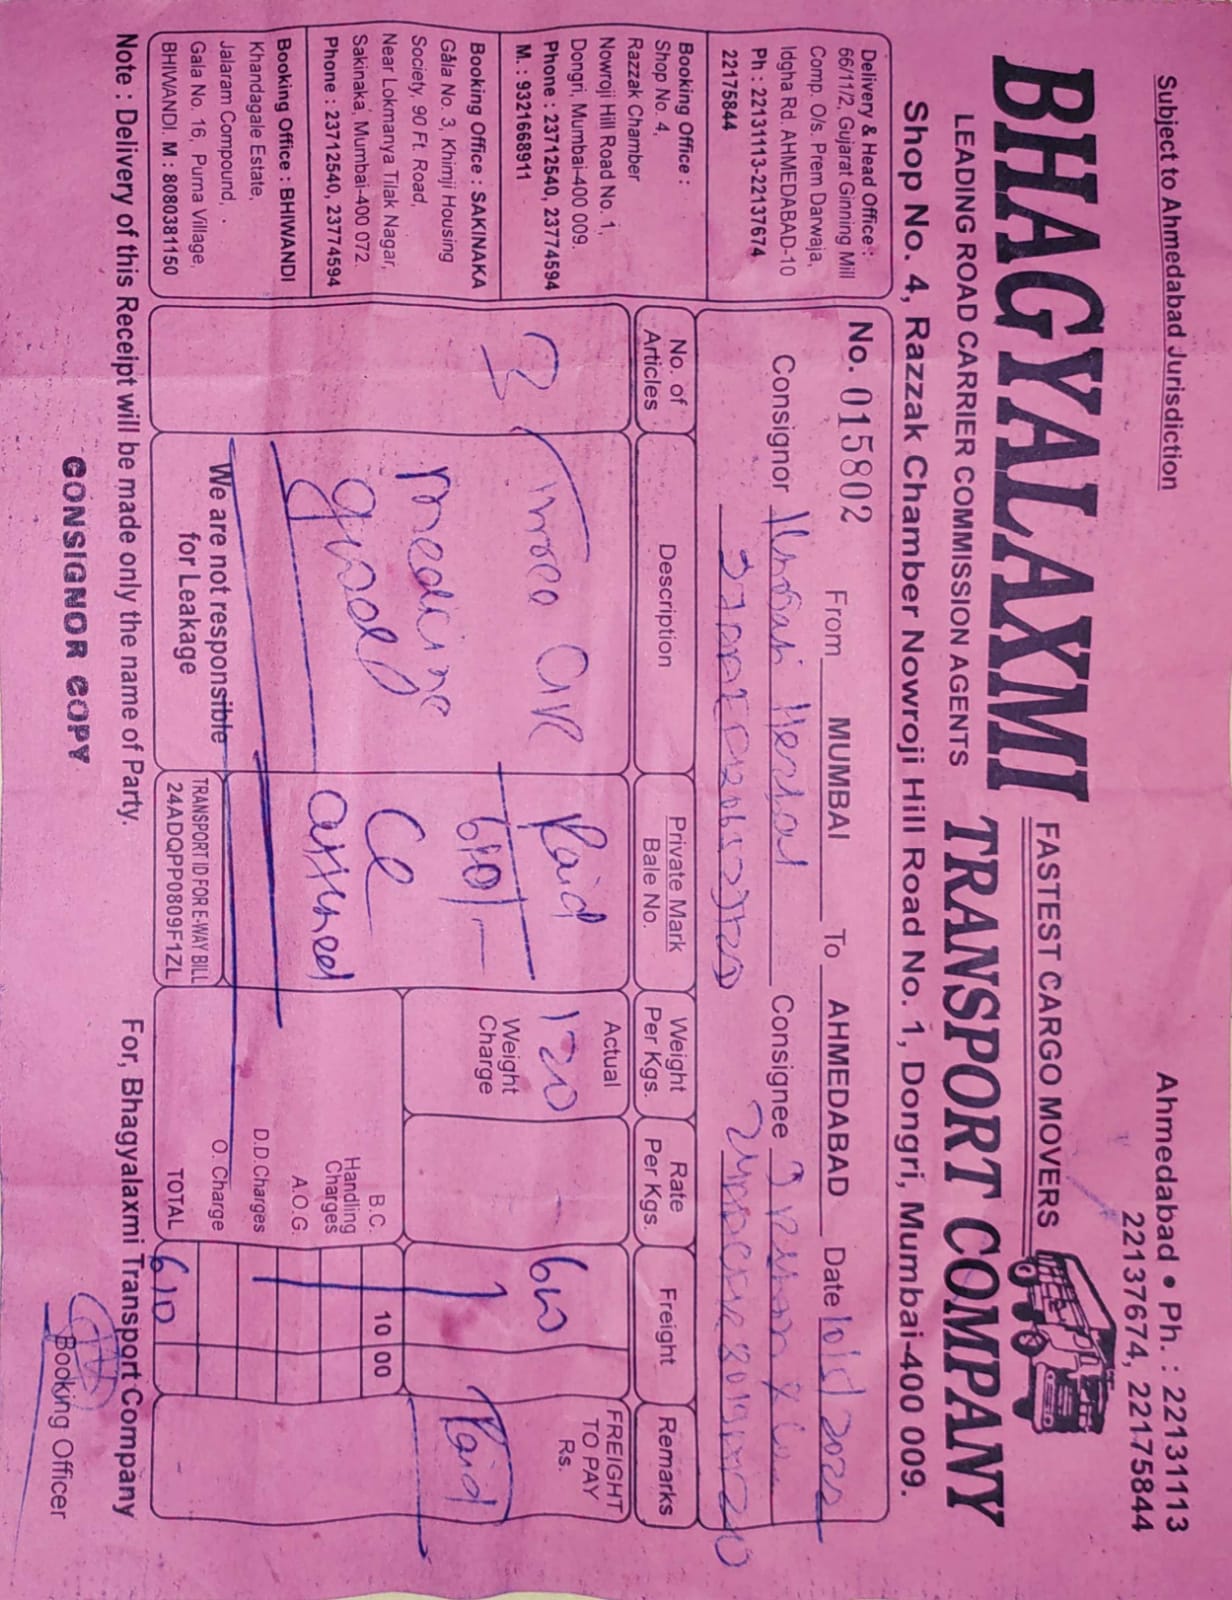 Subject to Ahmedabad Jurisdiction
Ahmedabad • Ph. : 22131113
22137674, 22175844
BHAGYALAXMI
FASTEST CARGO MOVERS
TRANSPORT COMPANY
LEADING ROAD CARRIER COMMISSION AGENTS
Shop No. 4, Razzak Chamber Nowroji Hill Road No. 1, Dongri, Mumbai-400 009.
Delivery & Head Office :
66/11/2, Gujarat Ginning Mill
Comp. O/s. Prem Darwaja,
Idgha Rd. AHMEDABAD-10
Ph : 22131113-22137674
22175844
Booking Office :
Shop No. 4,
Razzak Chamber
Nowroji Hill Road No. 1,
Dongri, Mumbai-400 009.
Phone : 23712540, 23774594
M. : 9321668911
Booking Office : SAKINAKA
Gala No. 3, Khimji Housing
Society, 90 Ft. Road,
Near Lokmanya Tilak Nagar,
Sakinaka, Mumbai-400 072.
Phone : 23712540, 23774594
Booking Office : BHIWANDI
Khandagale Estate,
Jalaram Compound,
Gala No. 16, Purna Village,
BHIWANDI. M : 8080381150
No. 015802 From MUMBAI To AHMEDABAD Date
Consignor Consignee
No. of Articles
Description
Private Mark
Bale No.
Weight Per Kgs.
Rate Per Kgs.
Freight
Remarks
3
Three
Medicine
goods
Paid
610/-
CC
attached
Actual
120
Weight Charge
600
FREIGHT TO PAY Rs.
Paid
B.C. 10 00
Handling Charges
A.O.G.
D.D.Charges
O. Charge
TOTAL 610
We are not responsible
for Leakage
TRANSPORT ID FOR E-WAY BILL
24ADQPP0809F1ZL
Note : Delivery of this Receipt will be made only the name of Party.
For, Bhagyalaxmi Transport Company
CONSIGNOR COPY
Booking Officer